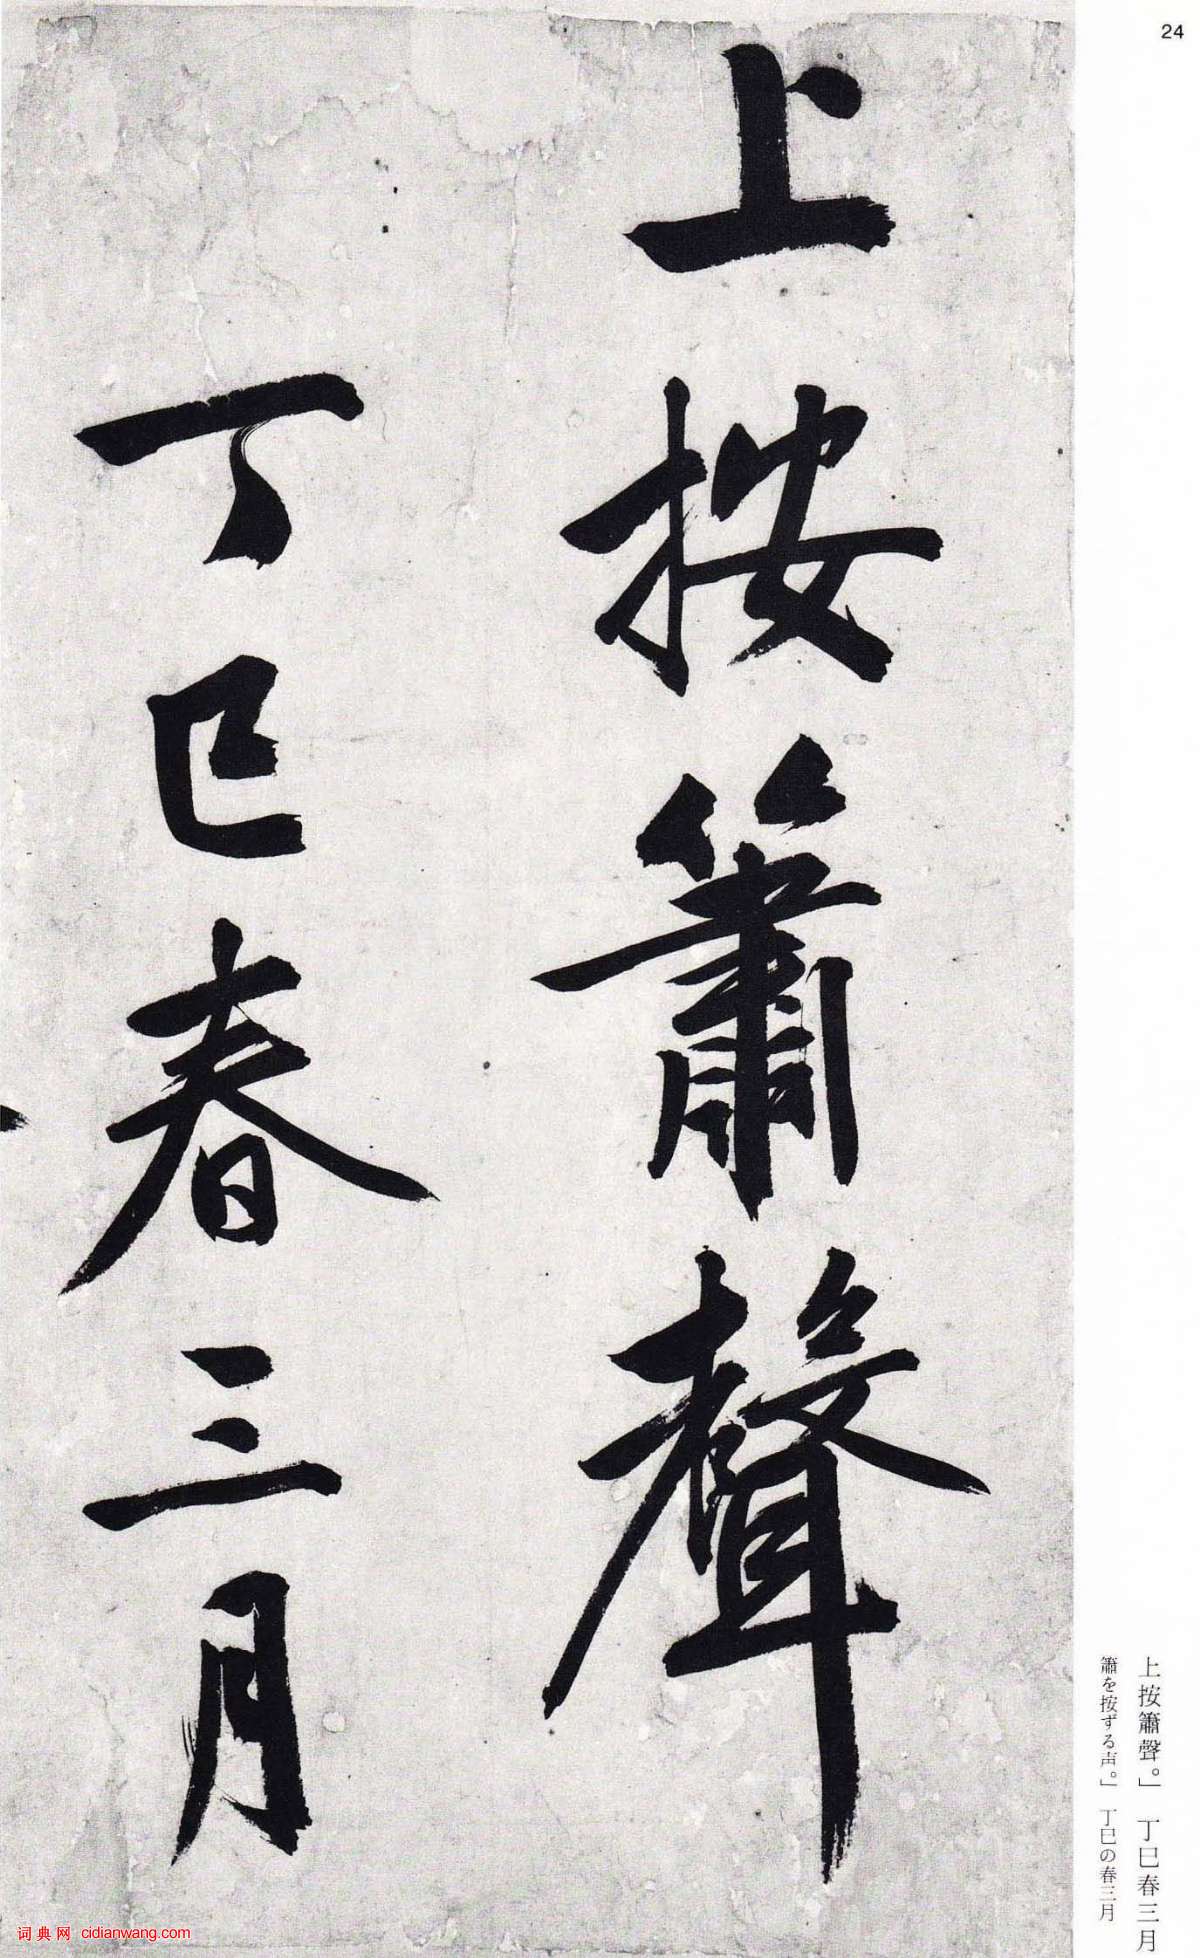 24
上按簫聲
丁巳春三月
上按簫聲。」 丁巳春三月
簫を按ずる声。」 丁巳の春三月
词典网 cidianwang.com